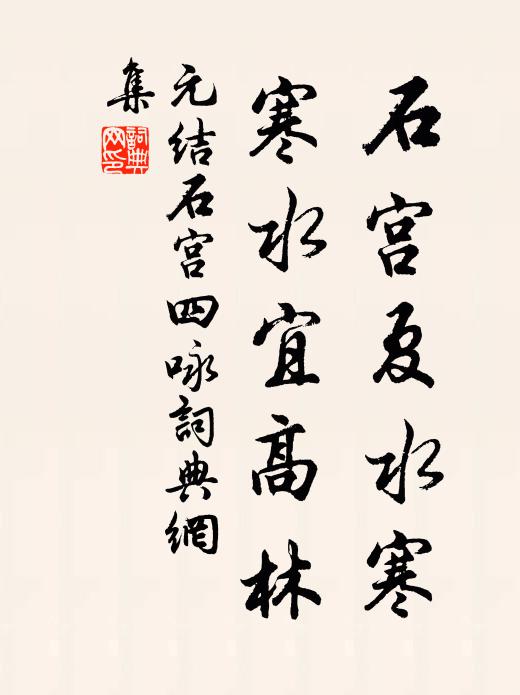 石宫夏水寒
寒水宜高林
元结石宫四咏詞典網
集
詞典
网印